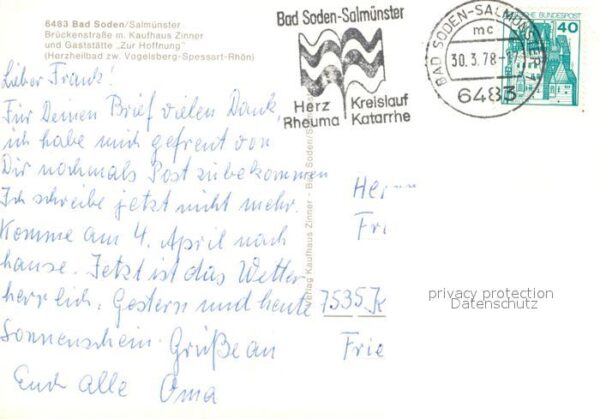 6483 Bad Soden/Salmünster
Brückenstraße m. Kaufhaus Zinner
und Gaststätte „Zur Hoffnung"
(Herzheilbad zw. Vogelsberg-Spessart-Rhön)
Bad Soden-Salmünster
Herz Kreislauf
Rheuma Katarrhe
BAD SODEN-SALMÜNSTER 1
mc
30.3.78-17
6483
DEUTSCHE BUNDESPOST
40
Lieber Frank!
Für Deinen Brief vielen Dank,
ich habe mich gefreut von
Dir nochmals Post zu bekommen
Ich schreibe jetzt nicht mehr.
Komme am 4. April nach
hause. Jetzt ist das Wetter
herrlich. Gestern und heute
Sonnenschein. Grüße an
Euch alle Oma
Verlag Kaufhaus Zinner - Bad Soden/S
Herrn
Fri
7535 K
Frie
privacy protection
Datenschutz